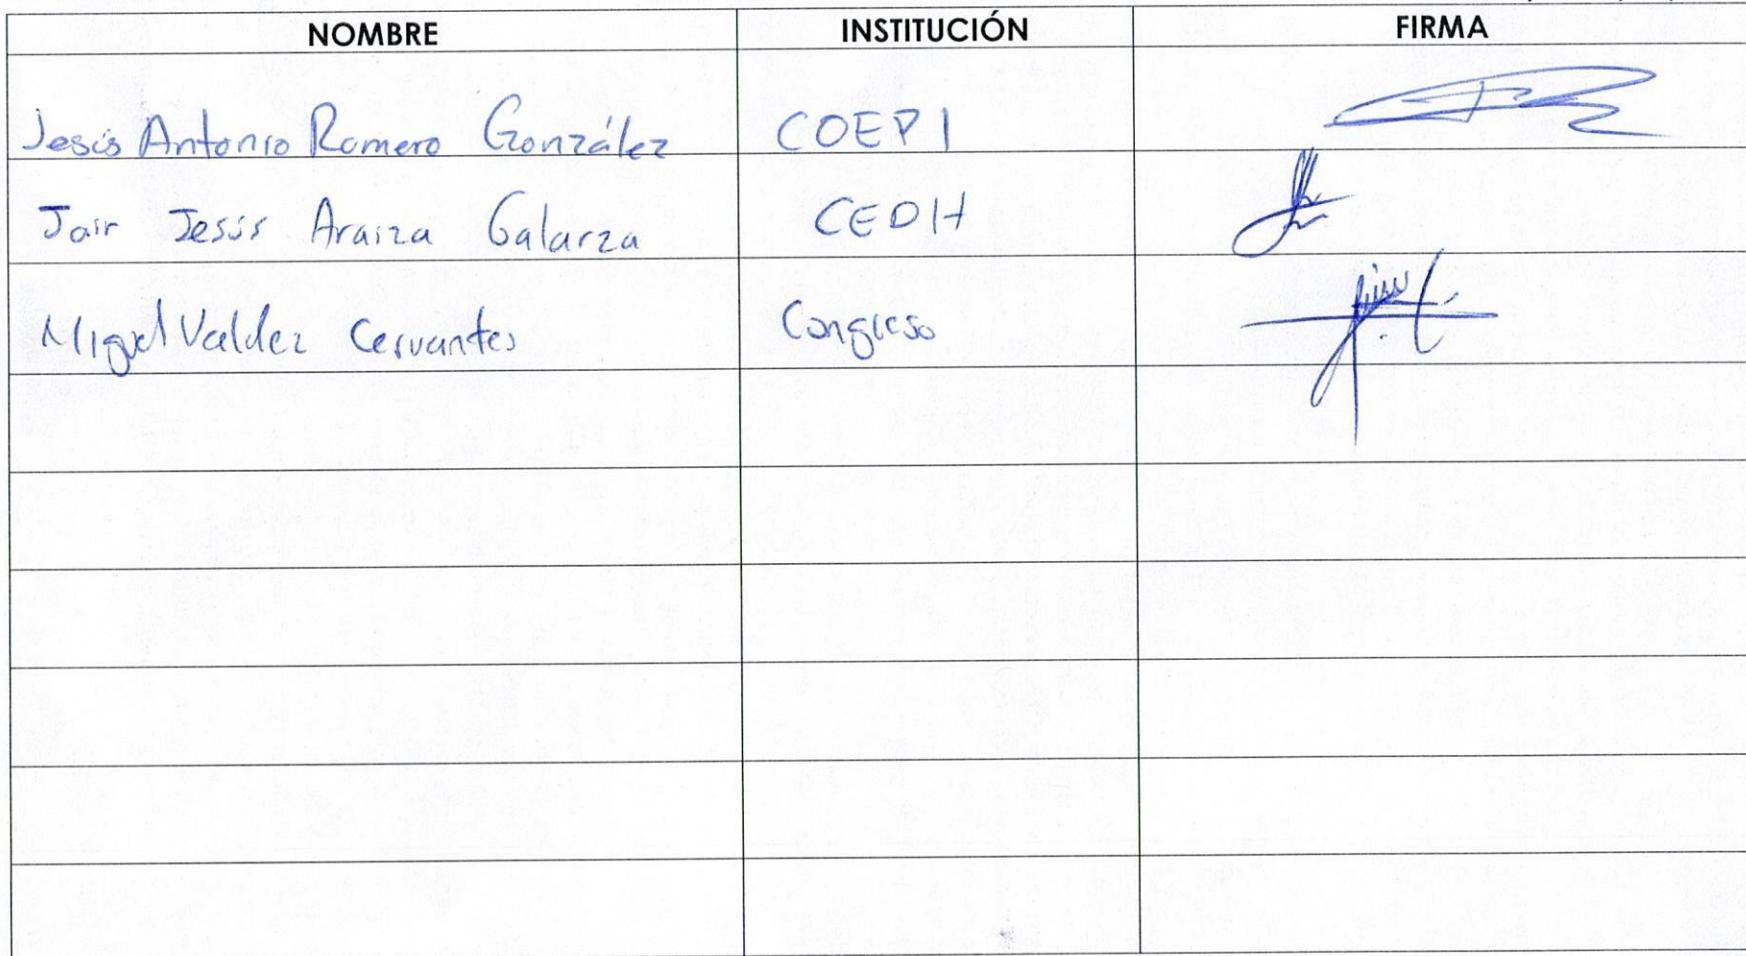 NOMBRE INSTITUCIÓN FIRMA
Jesús Antonio Romero González COEPI
Jair Jesús Araiza Galarza CEDH
Miguel Valdez Cervantes Congreso